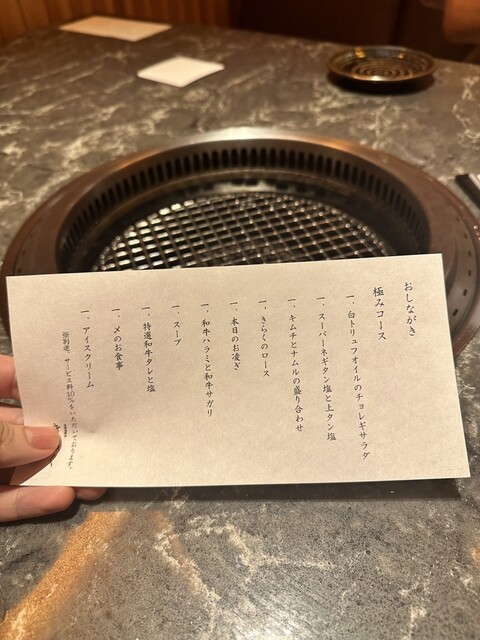 おしながき
極みコース
一、白トリュフオイルのチョレギサラダ
一、スーパーネギタン塩と上タン塩
一、キムチとナムルの盛り合わせ
一、きらくのロース
一、本日のお凌ぎ
一、和牛ハラミと和牛サガリ
一、スープ
一、特選和牛タレと塩
一、〆のお食事
一、アイスクリーム
※別途、サービス料10%をいただいております。